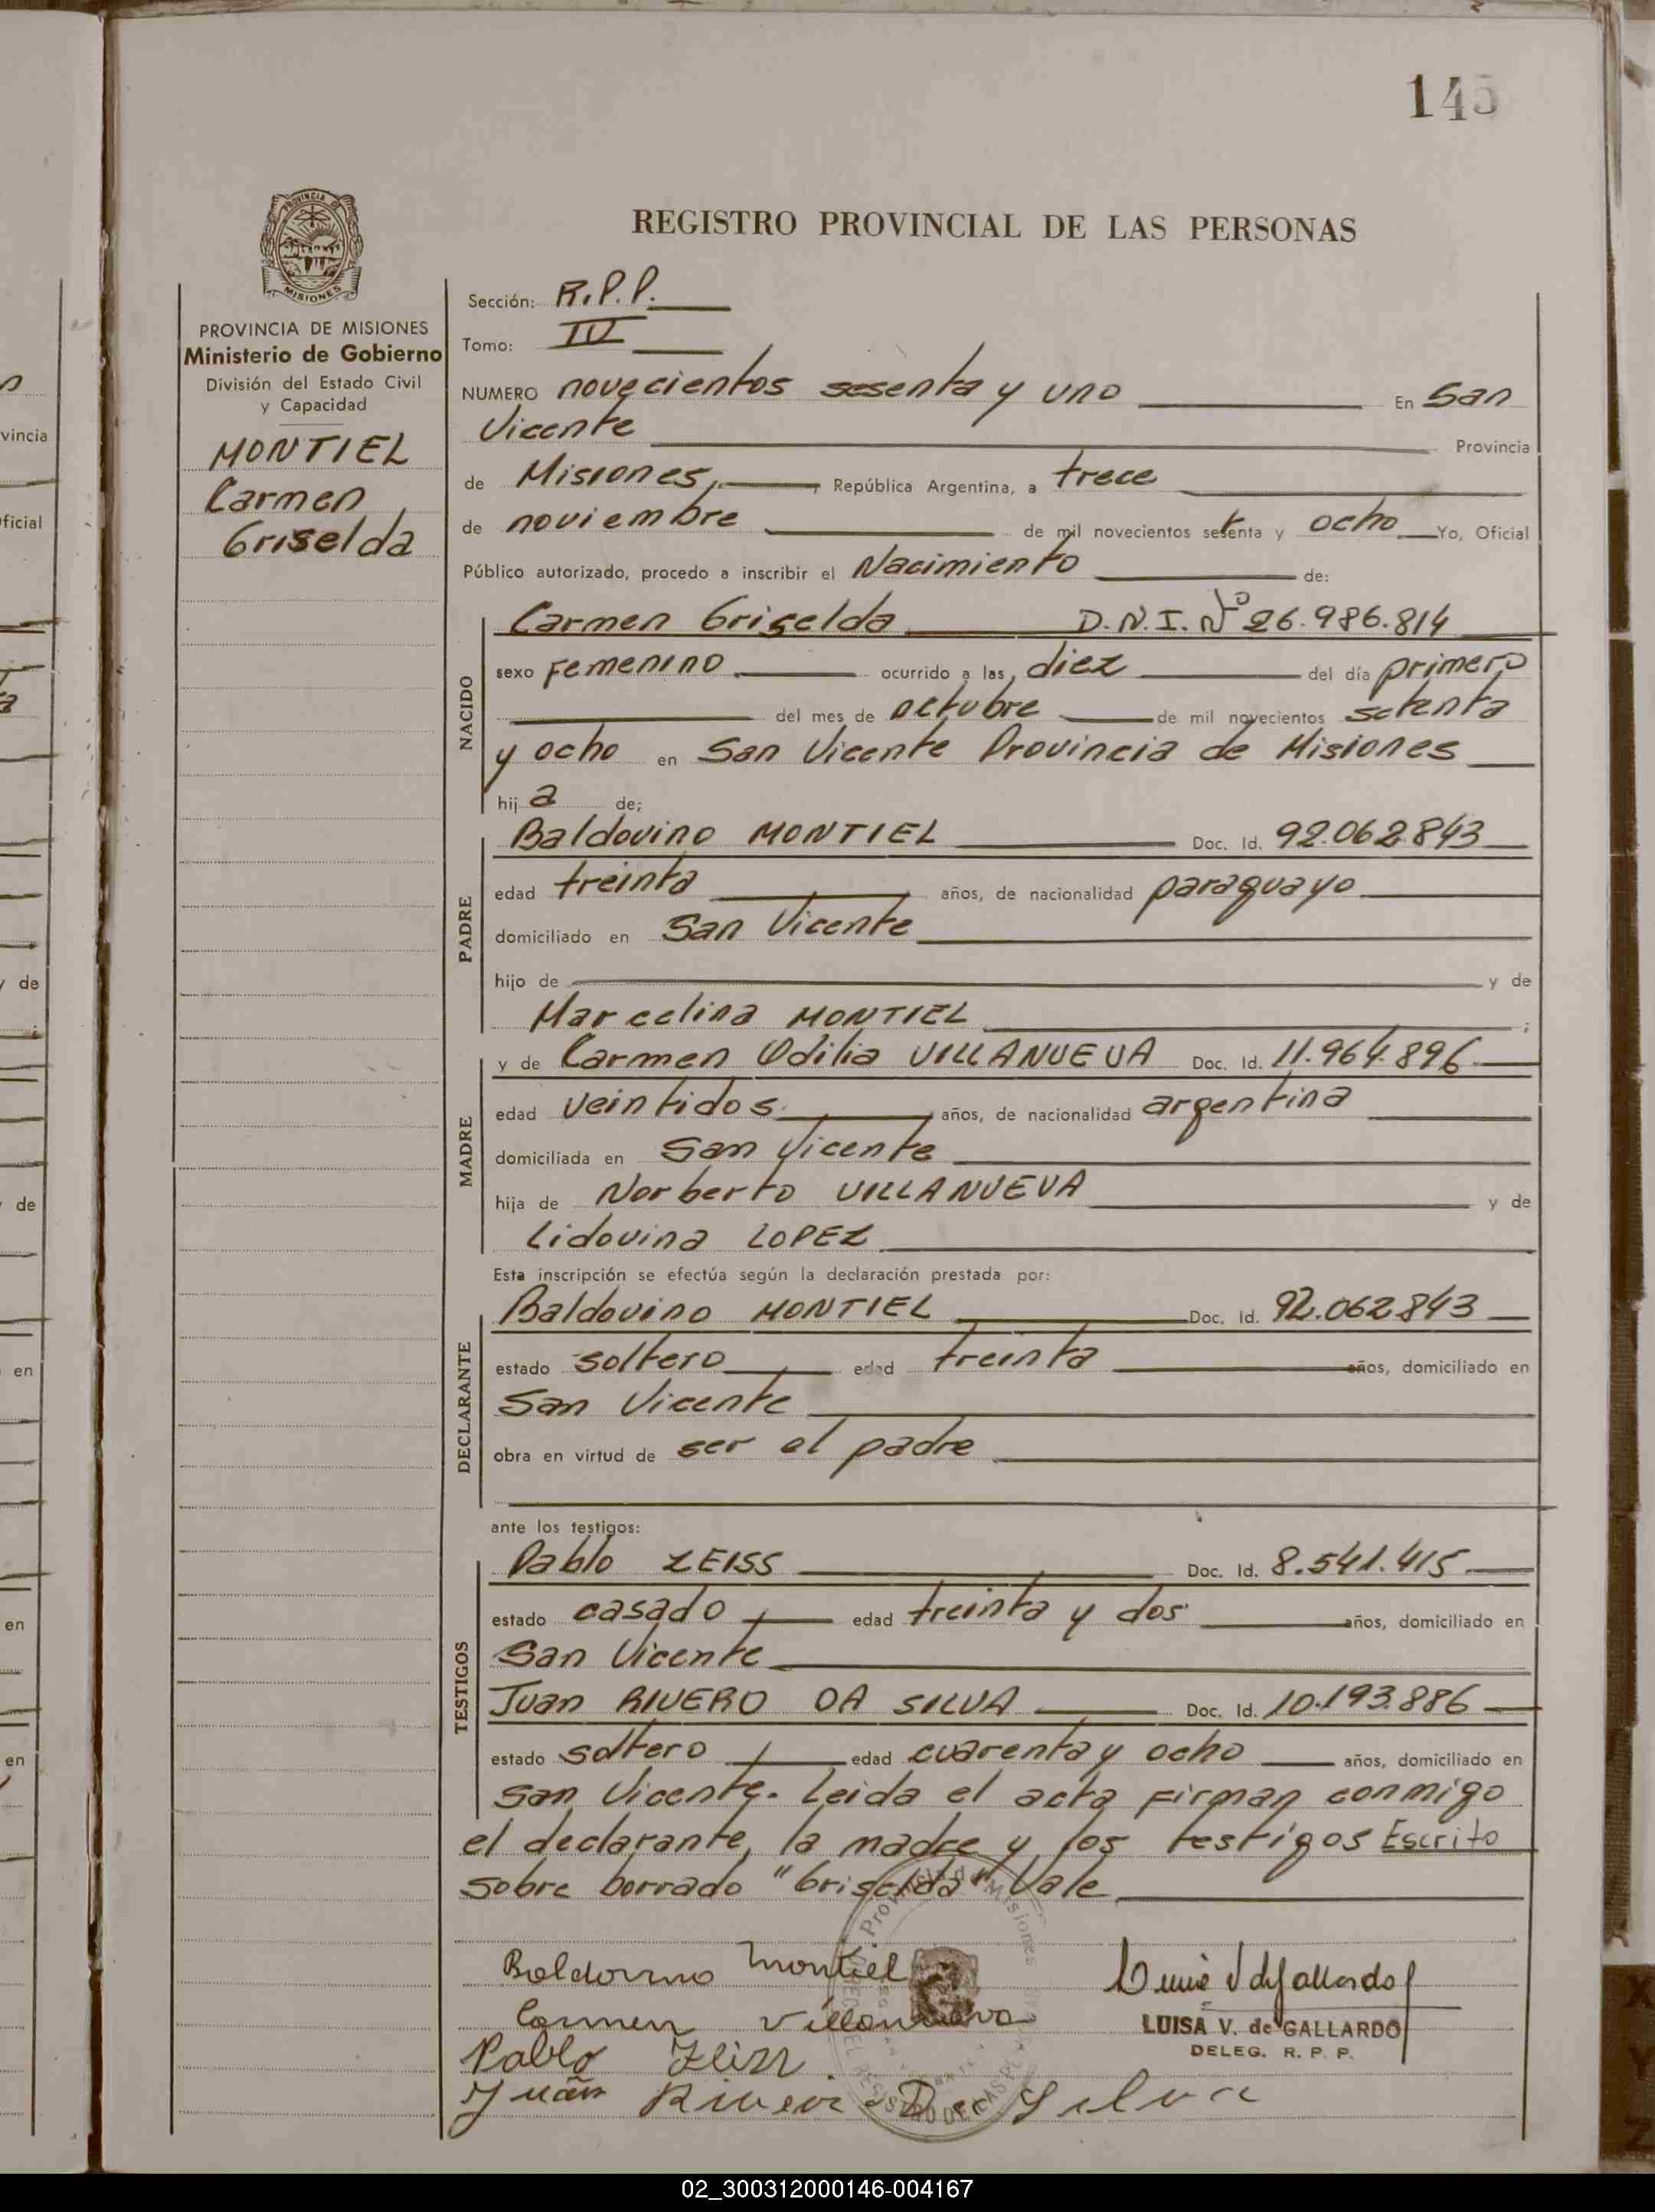 145
REGISTRO PROVINCIAL DE LAS PERSONAS
PROVINCIA DE MISIONES
Ministerio de Gobierno
División del Estado Civil
y Capacidad
MONTIEL
Carmen
Griselda
Sección: R.P.P.
Tomo: IV
NUMERO novecientos sesenta y uno En San
Vicente Provincia
de Misiones, República Argentina, a trece
de noviembre de mil novecientos setenta y ocho Yo, Oficial
Público autorizado, procedo a inscribir el Nacimiento de:
NACIDO
Carmen Griselda D.N.I. Nº 26.986.814
sexo Femenino ocurrido a las diez del día primero
del mes de octubre de mil novecientos setenta
y ocho en San Vicente Provincia de Misiones
hij a de;
PADRE
Baldovino MONTIEL Doc. Id. 92.062.843
edad treinta años, de nacionalidad paraguayo
domiciliado en San Vicente
hijo de y de
Marcelina MONTIEL ;
MADRE
y de Carmen Odilia VILLANUEVA Doc. Id. 11.964.896
edad veintidos años, de nacionalidad argentina
domiciliada en San Vicente
hija de Norberto VILLANUEVA y de
Lidovina LOPEZ
Esta inscripción se efectúa según la declaración prestada por:
DECLARANTE
Baldovino MONTIEL Doc. Id. 92.062.843
estado soltero edad treinta años, domiciliado en
San Vicente
obra en virtud de ser el padre
ante los testigos:
TESTIGOS
Pablo ZEISS Doc. Id. 8.541.415
estado casado edad treinta y dos años, domiciliado en
San Vicente
Juan RIVERO DA SILVA Doc. Id. 10.193.886
estado soltero edad cuarenta y ocho años, domiciliado en
San Vicente. Leida el acta firman conmigo
el declarante, la madre y los testigos Escrito
sobre borrado "Griselda" Vale
Baldovino Montiel
Carmen Villanueva
LUISA V. de GALLARDO
DELEG. R. P. P.
Pablo Zeiss
Juan Rivero Da Silva
02_300312000146-004167